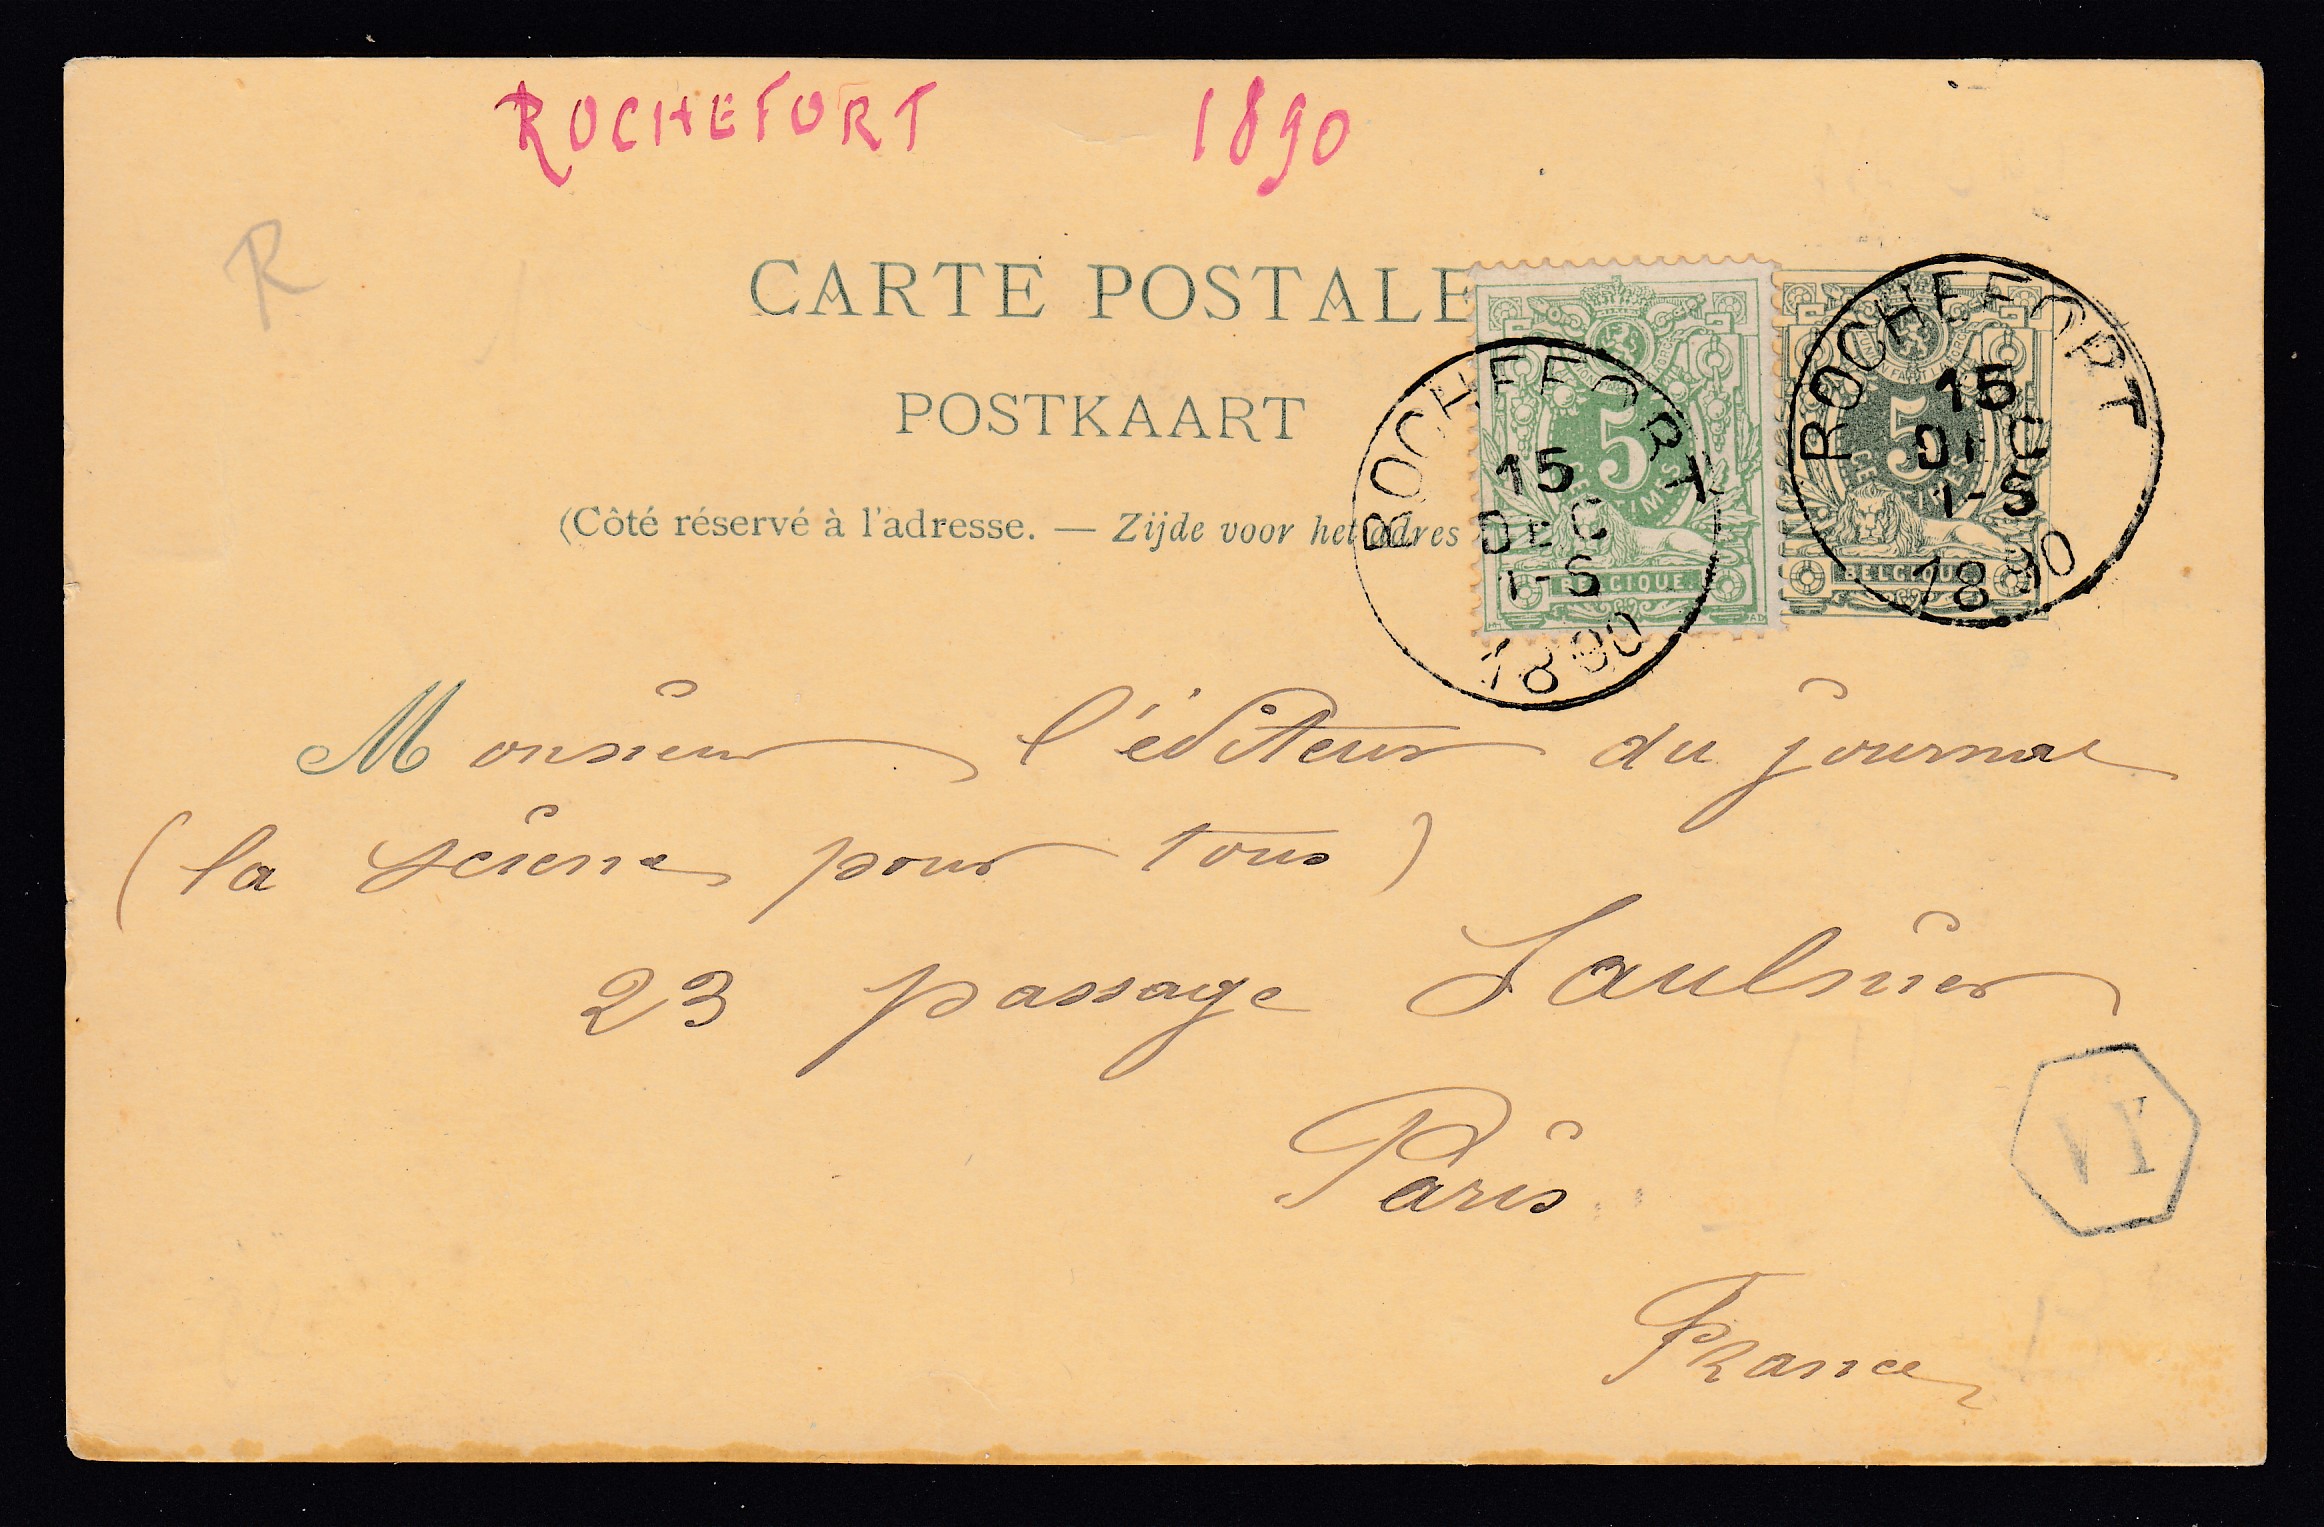 ROCHEFORT 1890
R
CARTE POSTALE
POSTKAART
(Côté réservé à l'adresse. — Zijde voor het adres
5
CENTIMES
BELGIQUE
ROCHEFORT
15
DEC
1-S
1890
5
CENTIMES
BELGIQUE
ROCHEFORT
15
DEC
1-S
1890
Monsieur l'éditeur du journal
(la science pour tous)
23 passage Saulnier
Paris
France
VI